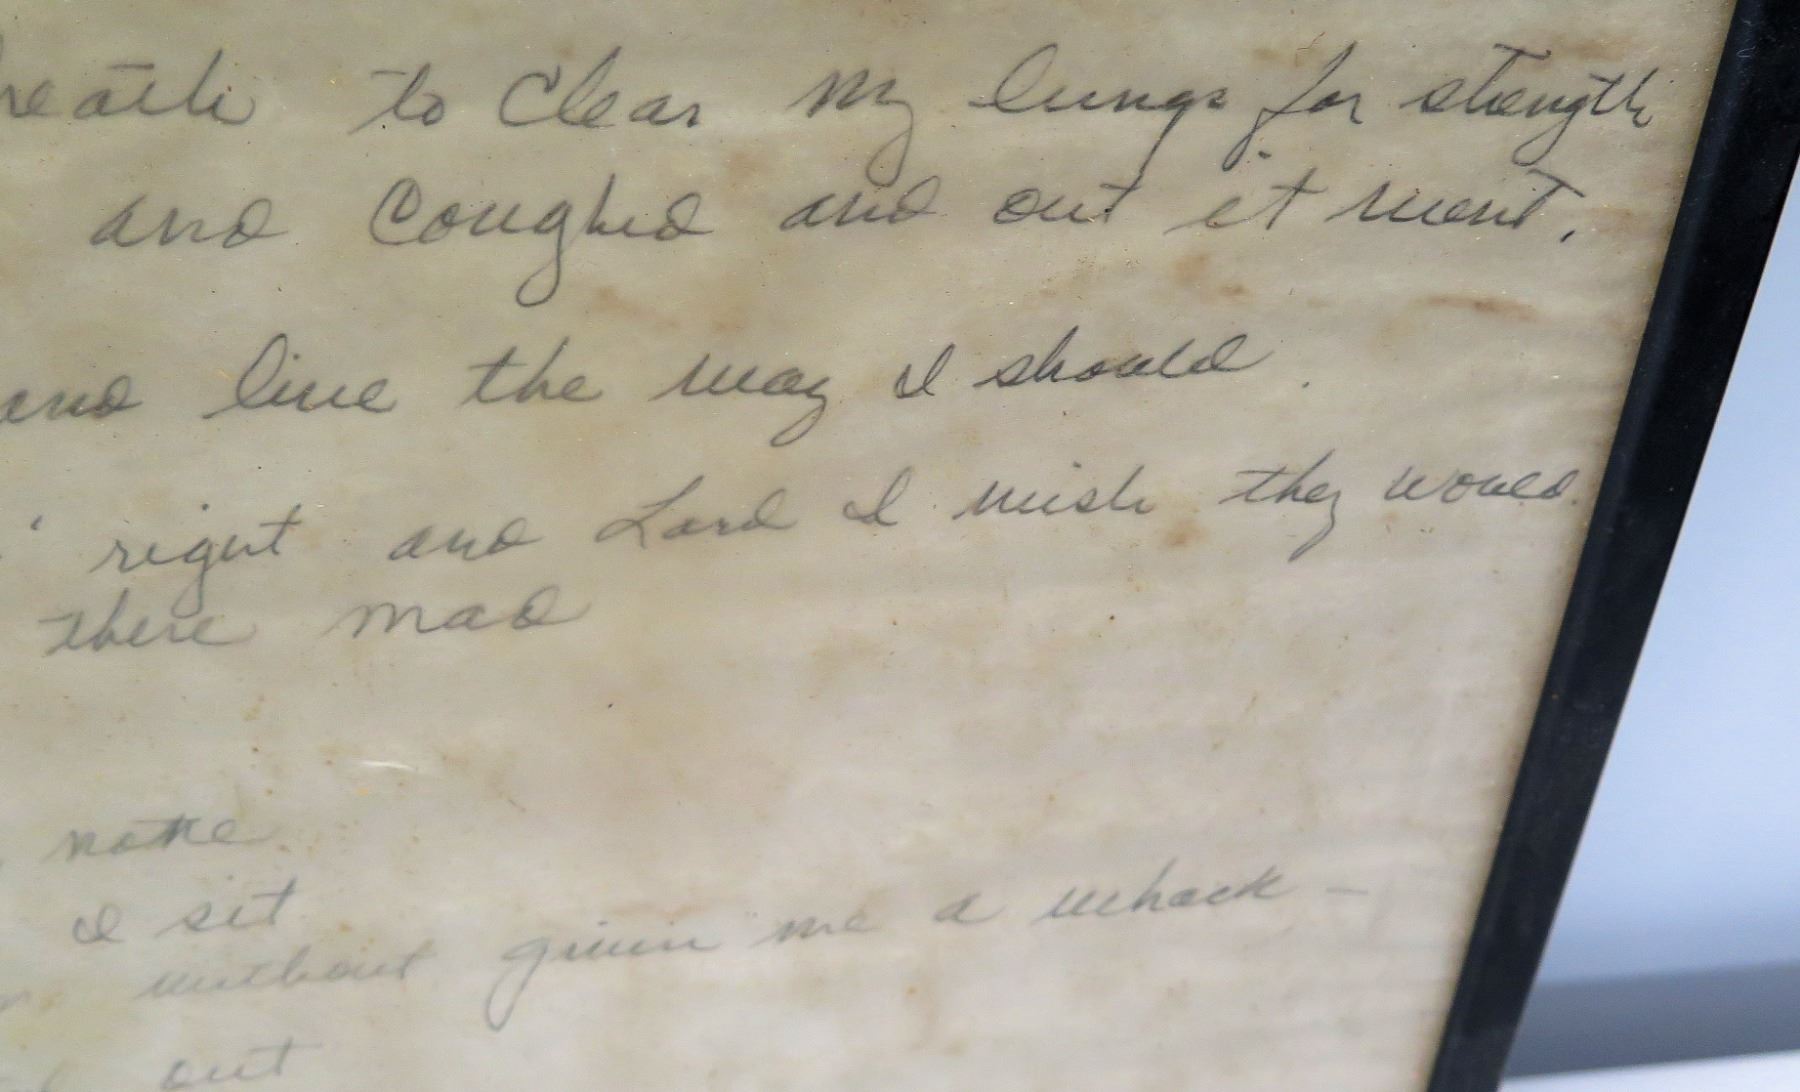 reath to Clear my lungs for strength
and Coughed and out it went.
and live the way I should.
right and Lord I wish they would.
there mad
note
I sit
without givin me a whack -
out